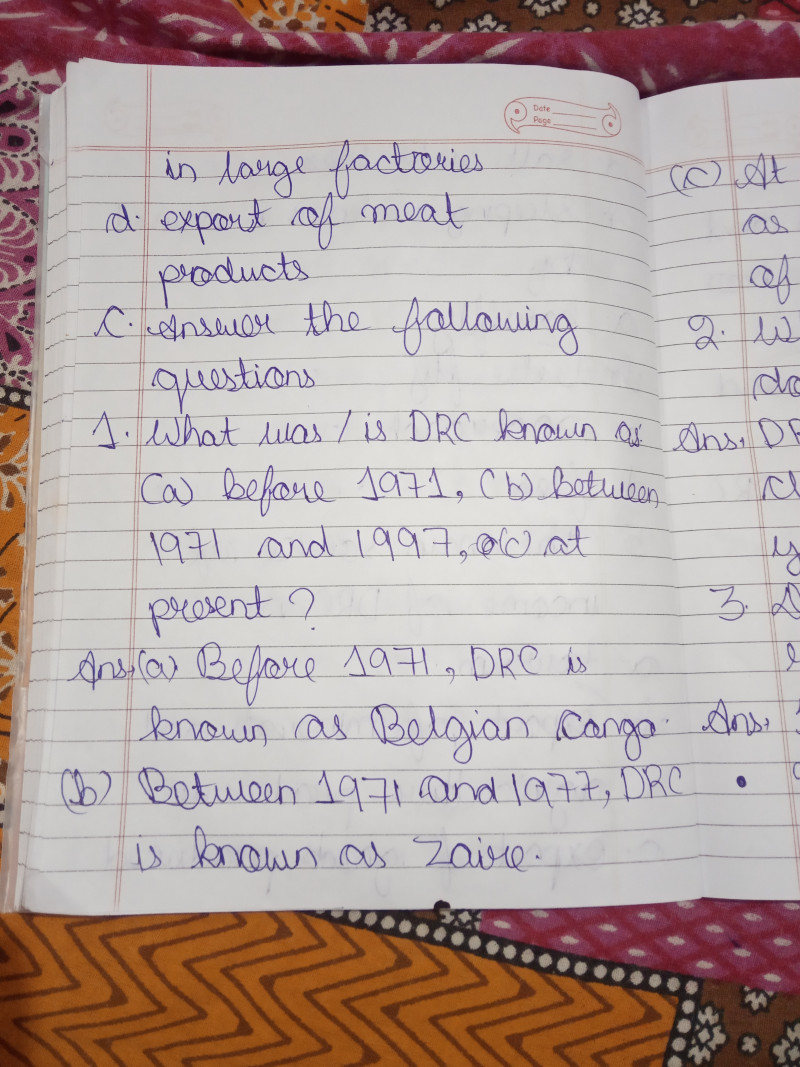 Date
Page
in large factories
d. export of meat
products
C. Answer the following
questions
1. What was / is DRC known as
(a) before 1971, (b) between
1971 and 1997, (c) at
present?
Ans, (a) Before 1971, DRC is
known as Belgian Congo.
(b) Between 1971 and 1977, DRC
is known as Zaire.
(c) At
as
of
2. W
do
Ans, DR
cl
y
3.
Ans,